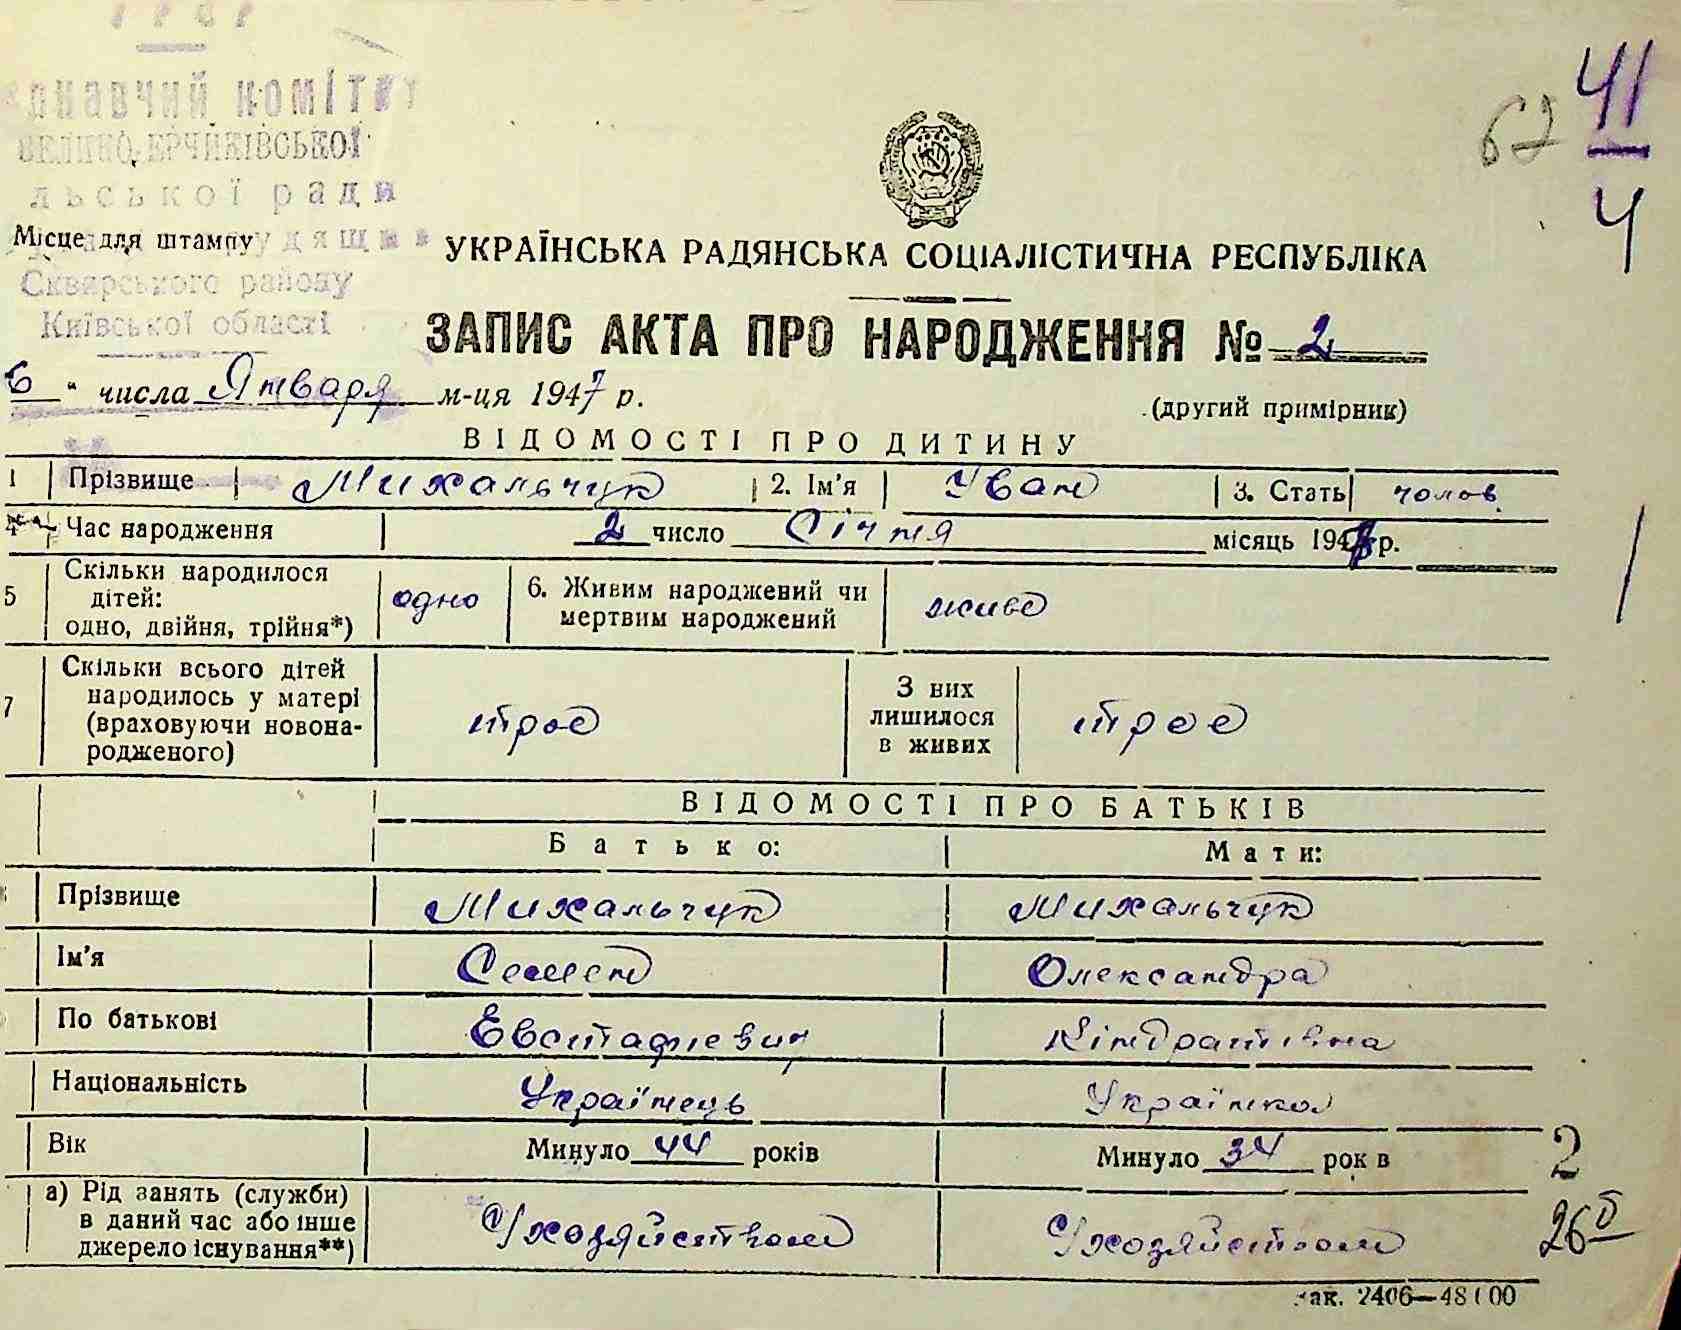 комітет
льської ради
Місце для штампу
Сквирського району
Київської області
62
41
4
УКРАЇНСЬКА РАДЯНСЬКА СОЦІАЛІСТИЧНА РЕСПУБЛІКА
ЗАПИС АКТА ПРО НАРОДЖЕННЯ № 2
6 " числа Января м-ця 1947 р.
(другий примірник)
ВІДОМОСТІ ПРО ДИТИНУ
1 Прізвище Михальчук 2. Ім'я Уван 3. Стать чолов
4 Час народження 2 число Січня місяць 1947 р.
5 Скільки народилося дітей: одно, двійня, трійня*) одно 6. Живим народжений чи мертвим народжений живе
7 Скільки всього дітей народилось у матері (враховуючи новонародженого) троє З них лишилося в живих троє
ВІДОМОСТІ ПРО БАТЬКІВ
Батько: Мати:
Прізвище Михальчук Михальчук
Ім'я Семен Олександра
По батькові Евстафиевич Кіндратівна
Національність Українець Українка
Вік Минуло 44 років Минуло 34 рок в
2
а) Рід занять (служби) в даний час або інше джерело існування**) С/хозяйством С/хозяйством
26
зак. 2406—48100